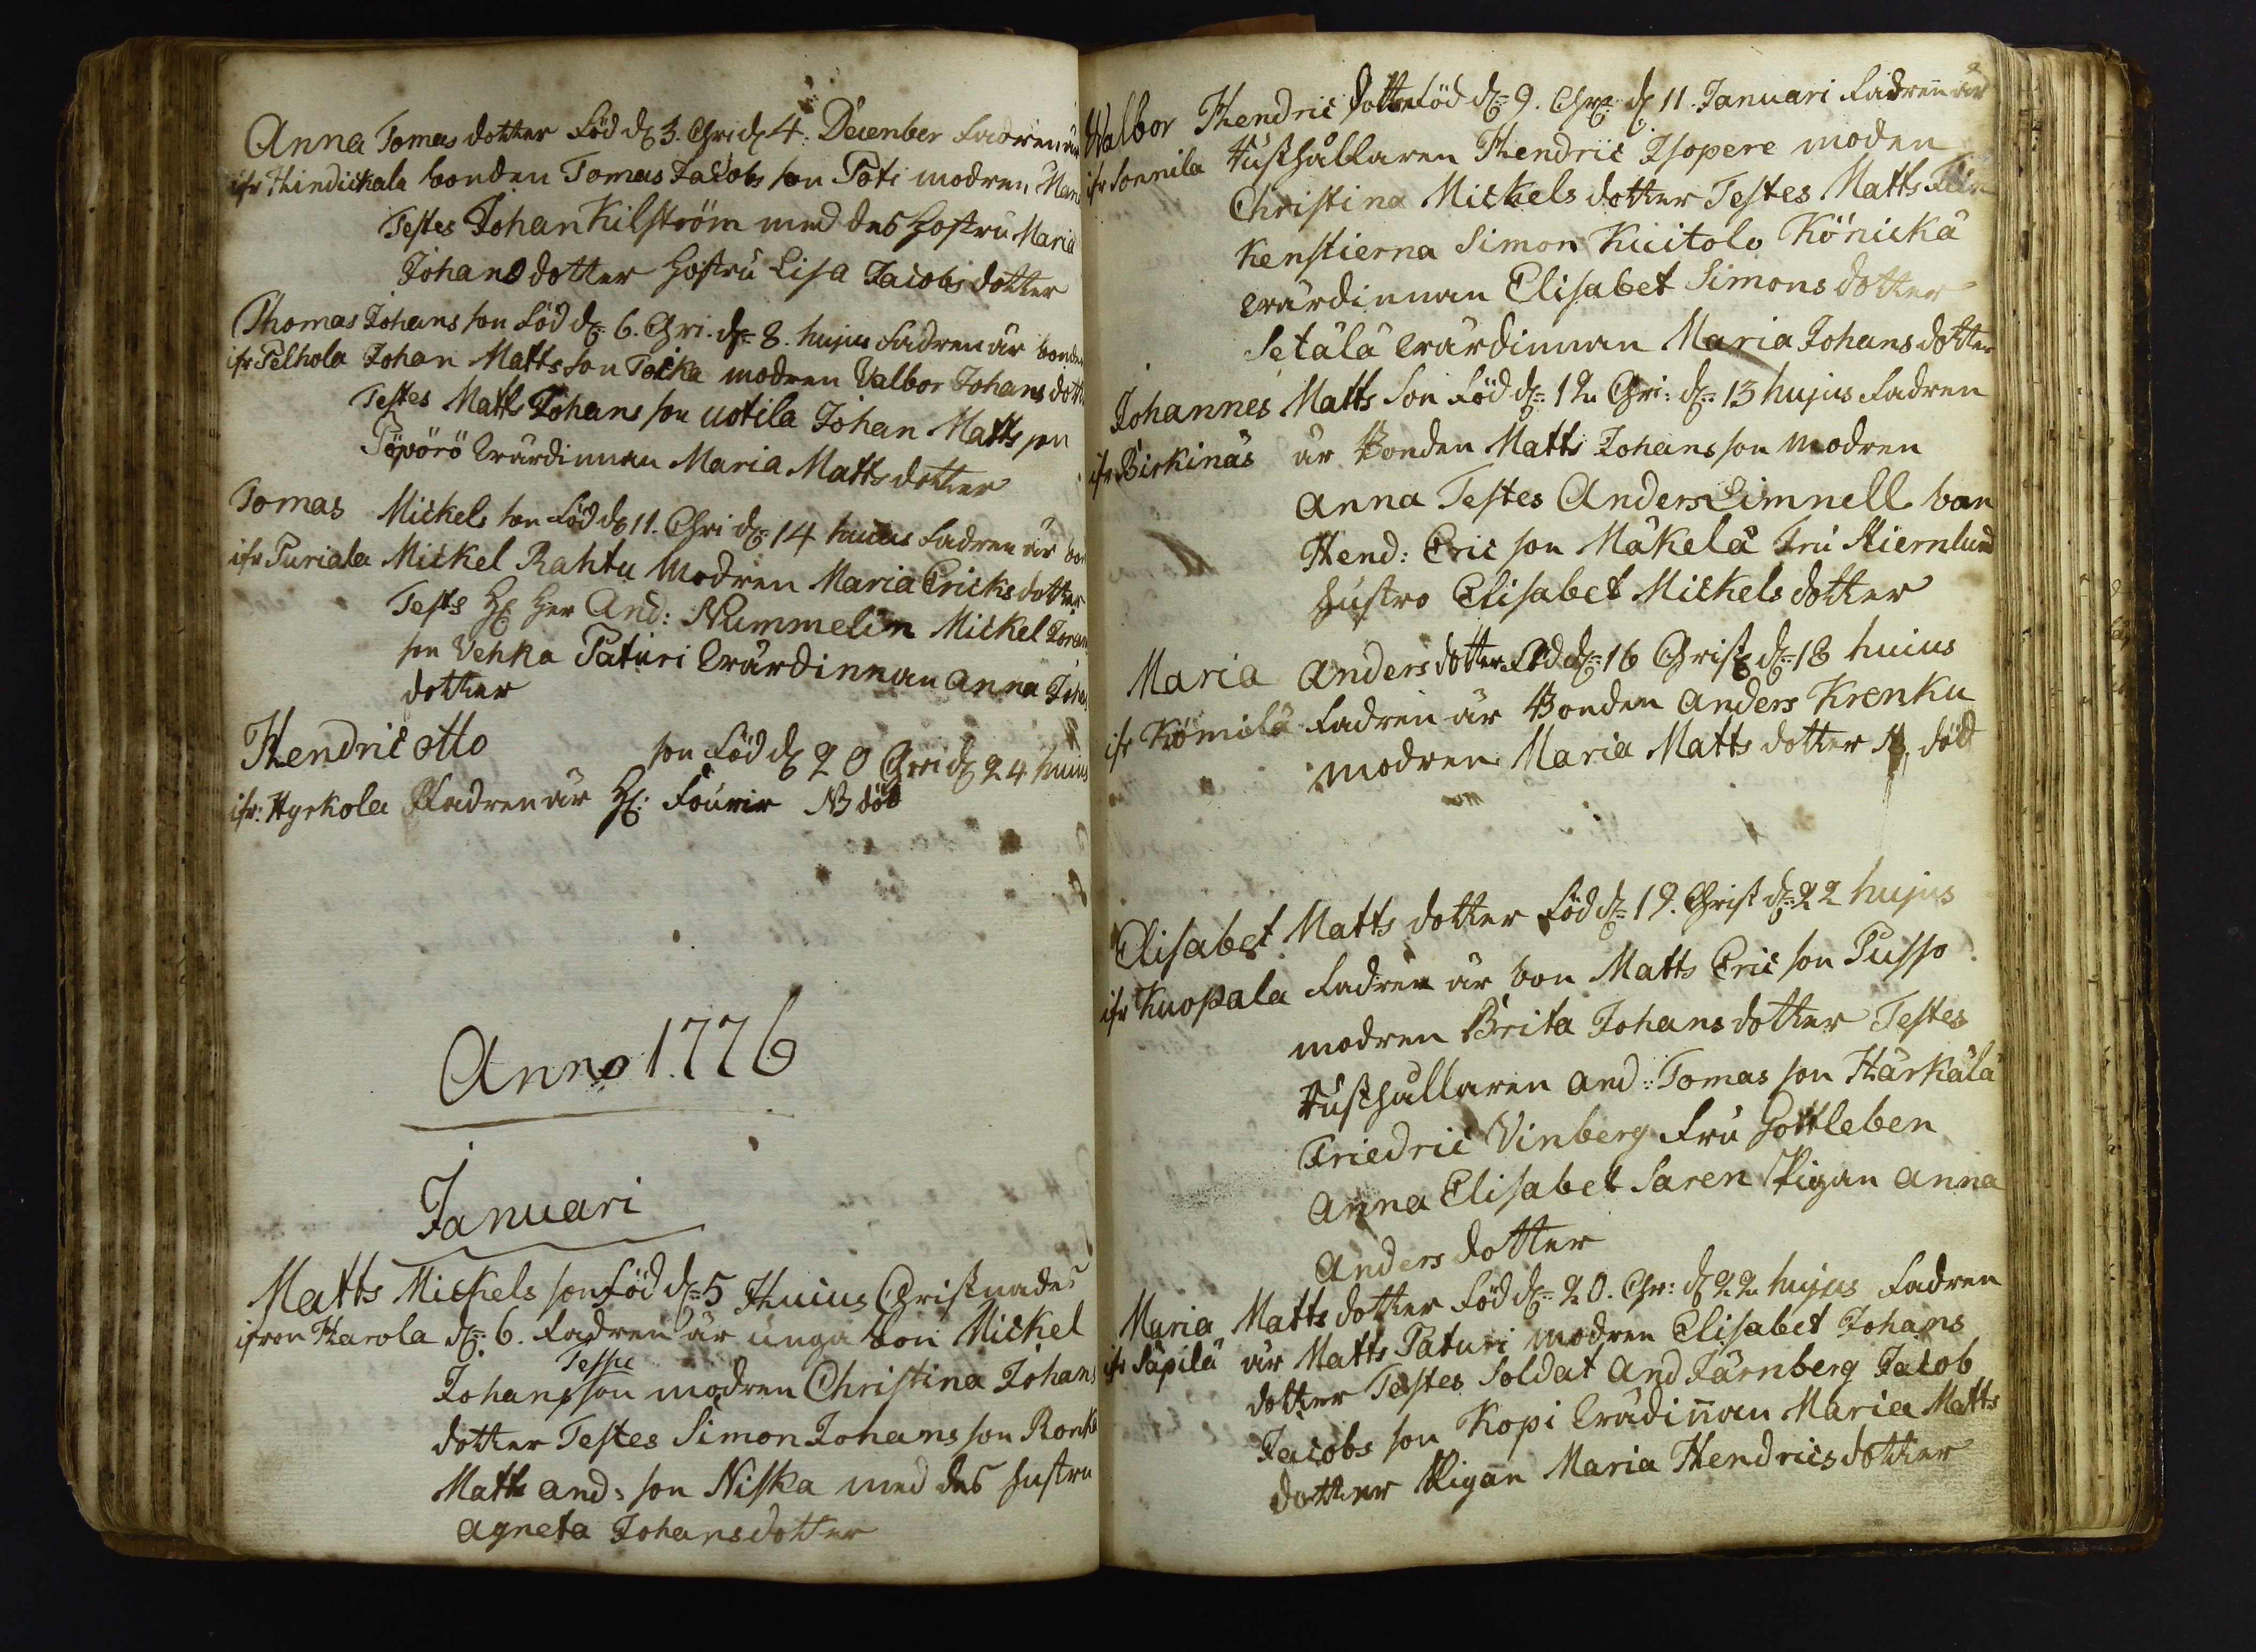 Anna Tomas dotter Född d 3. Chri d 4: December Fadren är
ifr Hindickala bonden Tomas Jacobs son Poti modren Mari
Testes Johan Kilström med des Hostru Maria
Johans dotter Hostru Lisa Jacobs dotter
Thomas Johans son Född d= 6. Chri. d= 8. hujus Fadren är bonden
ifr Pelhola Johan Matts son Tocka modren Valbor Johans dott
Testes Matts Johans son uotila Johan Matts son
Pöpörö Wärdinnan Maria Matts dotter
Tomas Mickels son Född d 11. Chri d= 14 huius Fadren är bon
ifr Puriala Mickel Rahtu Modren Maria Ericks dotter
Tests H Her And: Nummelin Mickel
son Vehka Paturi Wärdinnan Anna Joha
dotter
Hendric otto son Född d 20 Chri d 24 huius
ifr: Hyrkola Fadren är H: Fourir NB död
Anno 1776
Januari
Matts Mickels son Född d= 5 Huius Christnades
ifrån Harola d= 6. Fadren är unga bon Mickel
Tessie
Johans son modren Christina Johans
dotter Testes Simon Johans son Ronka
Matts And: son Niska med des Hustru
Agneta Johansdotter
Walbor Hendric dotter Född d= 9. Chr d 11. Januari Fadren är
ifr Sonnila Rusthållaren Hendric Isopere moden
Christina Mickels dotter Testes Matts Fin
Kenstierna Simon Kuitolo Könickä
Wärdinnan Elisabet Simons dotter
Setälä Wärdinnan Maria Johans dotter
Johannes Matts Son Född d= 12 Chri: d= 13 hujus Fadren
ifr Birkinäs är Bonden Matts Johans son modren
Anna Testes Anders Limnell bon
Hend: Eric son Mäkelä Fru Stiernlund
Hustro Elisabet Mickels dotter
Maria Anders dotter Född d= 16 Christ d= 18 huius
ifr Kömilä Fadren är Bonden Anders Krenku
modren Maria Matts dotter NB död
Elisabet Matts dotter Född d= 19. Christ d= 22 hujus
ifr Knopala Fadren är bon Matts Eric son Pusso
modren Brita Johans dotter Testes
Rusthållaren And: Tomas son Härkälä
Friedric Vinberg Fru Gottleben
Anna Elisabet Saren Pigan Anna
Anders dotter
Maria Matts dotter Född d= 20. Chr: d 22 hujus Fadren
ifr Säpilä är Matts Paturi modren Elisabet Johans
dotter Testes Soldat And Järnberg Jacob
Jacobs son Kopi Wärdinnan Maria Matts
dotter Pigan Maria Hendricsdotter